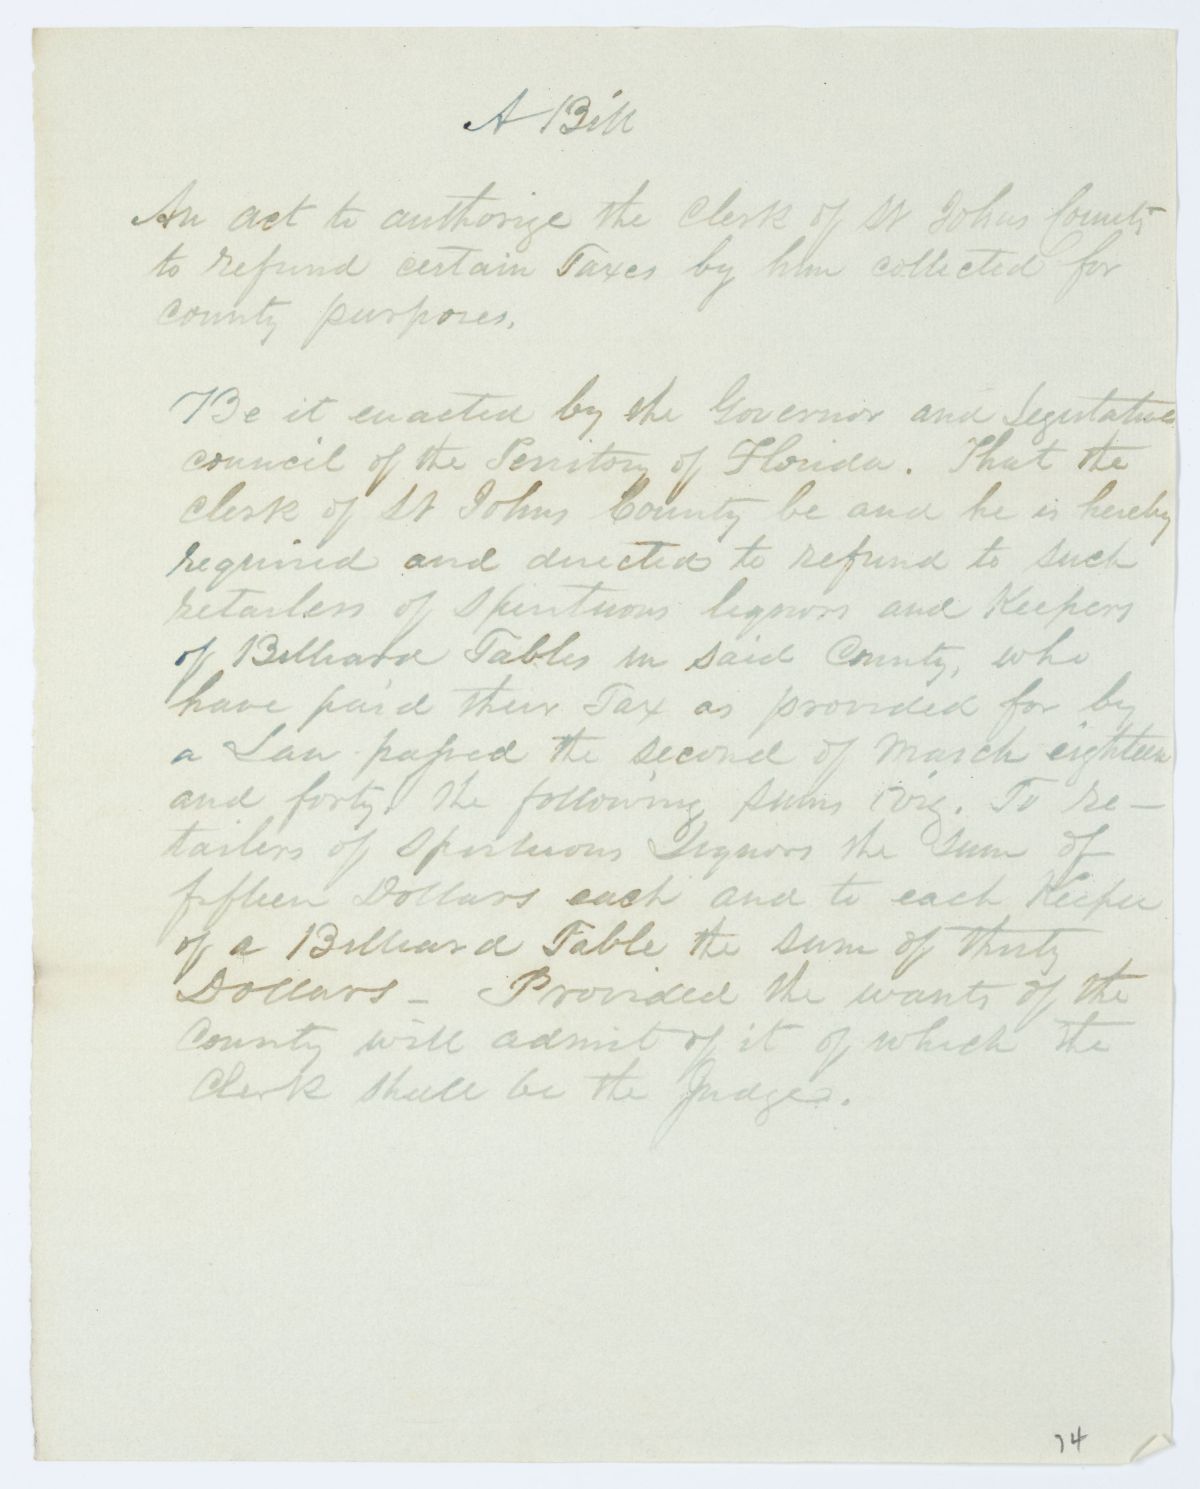 A Bill
An act to authorize the Clerk of St Johns County
to refund certain Taxes by him collected for
county purposes.
Be it enacted by the Governor and Legislative
council of the Territory of Florida. That the
Clerk of St Johns County be and he is hereby
required and directed to refund to such
retailers of Spirituous liquors and Keepers
of Billiard Tables in said County, who
have paid their Tax as provided for by
a Law passed the second of March eighteen
and forty, the following sums viz. To re-
tailers of Spirituous Liquors the sum of
fifteen Dollars each and to each Keeper
of a Billiard Table the sum of thirty
Dollars - Provided the wants of the
County will admit of it of which the
Clerk shall be the Judge.
74